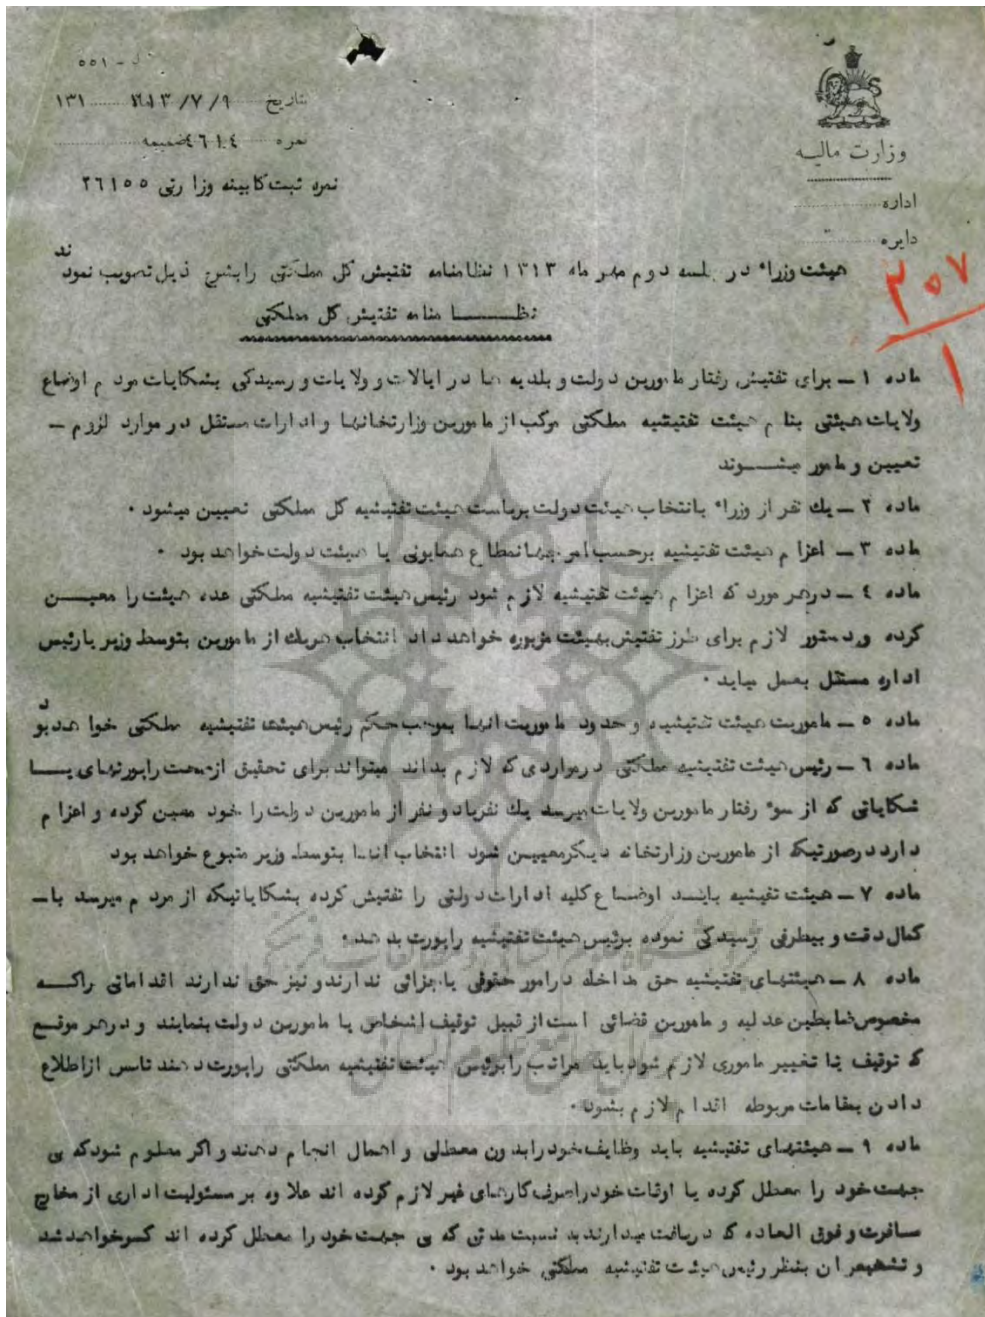 ل - ۵۵۱
تاریخ ۱۳۱۳/۷/۹ ۱۳۱
نمره ٤٦١٠٤ ضمیمه
نمره ثبت کابینه وزارتی ۲٦۱۵۵
وزارت مالیه
اداره
دایره
۲۵۷
۱
هیئت وزراء در جلسه دوم مهر ماه ۱۳۱۳ نظامنامه تفتیش کل مملکتی را بشرح ذیل تصویب نمودند
نظامنامه تفتیش کل مملکتی
ماده ۱ – برای تفتیش رفتار مامورین دولت و بلدیه ها در ایالات و ولایات و رسیدگی بشکایات مردم اوضاع
ولایات هیئتی بنام هیئت تفتیشیه مملکتی مرکب از مامورین وزارتخانها و ادارات مستقل در موارد لزوم –
تعیین و مامور میشوند
ماده ۲ – یك نفر از وزراء بانتخاب هیئت دولت بریاست هیئت تفتیشیه کل مملکتی تعیین میشود ۰
ماده ۳ – اعزام هیئت تفتیشیه برحسب امر جهانمطاع همایونی یا هیئت دولت خواهد بود ۰
ماده ٤ – در هر مورد که اعزام هیئت تفتیشیه لازم شود رئیس هیئت تفتیشیه مملکتی عده هیئت را معین
کرده و دستور لازم برای طرز تفتیش بهیئت مزبوره خواهد داد انتخاب هریك از مامورین بتوسط وزیر یا رئیس
اداره مستقل بعمل میاید ۰
ماده ۵ – ماموریت هیئت تفتیشیه و حدود ماموریت انها بموجب حکم رئیس هیئت تفتیشیه مملکتی خواهد بود
ماده ٦ – رئیس هیئت تفتیشیه مملکتی در مواردی که لازم بداند میتواند برای تحقیق از صحت راپورتهای یا
شکایاتی که از سوء رفتار مامورین ولایات میرسد یك نفر یا دو نفر از مامورین دولت را خود معین کرده و اعزام
دارد در صورتیکه از مامورین وزارتخانه دیگر معیین شود انتخاب انها بتوسط وزیر متبوع خواهد بود
ماده ۷ – هیئت تفتیشیه بایــد اوضاع کلیه ادارات دولتی را تفتیش کرده بشکایاتیکه از مردم میرسد با –
کمال دقت و بیطرفی رسیدگی نموده برئیس هیئت تفتیشیه راپورت بدهد ۰
ماده ۸ – هیئتهای تفتیشیه حق مداخله در امور حقوقی یا جزائی ندارند و نیز حق ندارند اقداماتی راکه
مخصوص ضابطین عدلیه و مامورین قضائی است از قبیل توقیف اشخاص یا مامورین دولت بنمایند و در هر موقع
که توقیف یا تغییر ماموری لازم شود باید مراتب را برئیس هیئت تفتیشیه مملکتی راپورت دهند تا پس از اطلاع
دادن بمقامات مربوطه اقدام لازم بشود ۰
ماده ۹ – هیئتهای تفتیشیه باید وظایف خود را بدون معطلی و اهمال انجام دهند و اگر معلوم شود که بی
جهت خود را معطل کرده یا اوقات خود را صرف کارهای غیر لازم کرده اند علاوه بر مسئولیت اداری از مخارج
مسافرت و فوق العاده که دریافت میدارند به نسبت مدتی که بی جهت خود را معطل کرده اند کسر خواهد شد
و تشخیص ان بنظر رئیس هیئت تفتیشیه مملکتی خواهد بود ۰